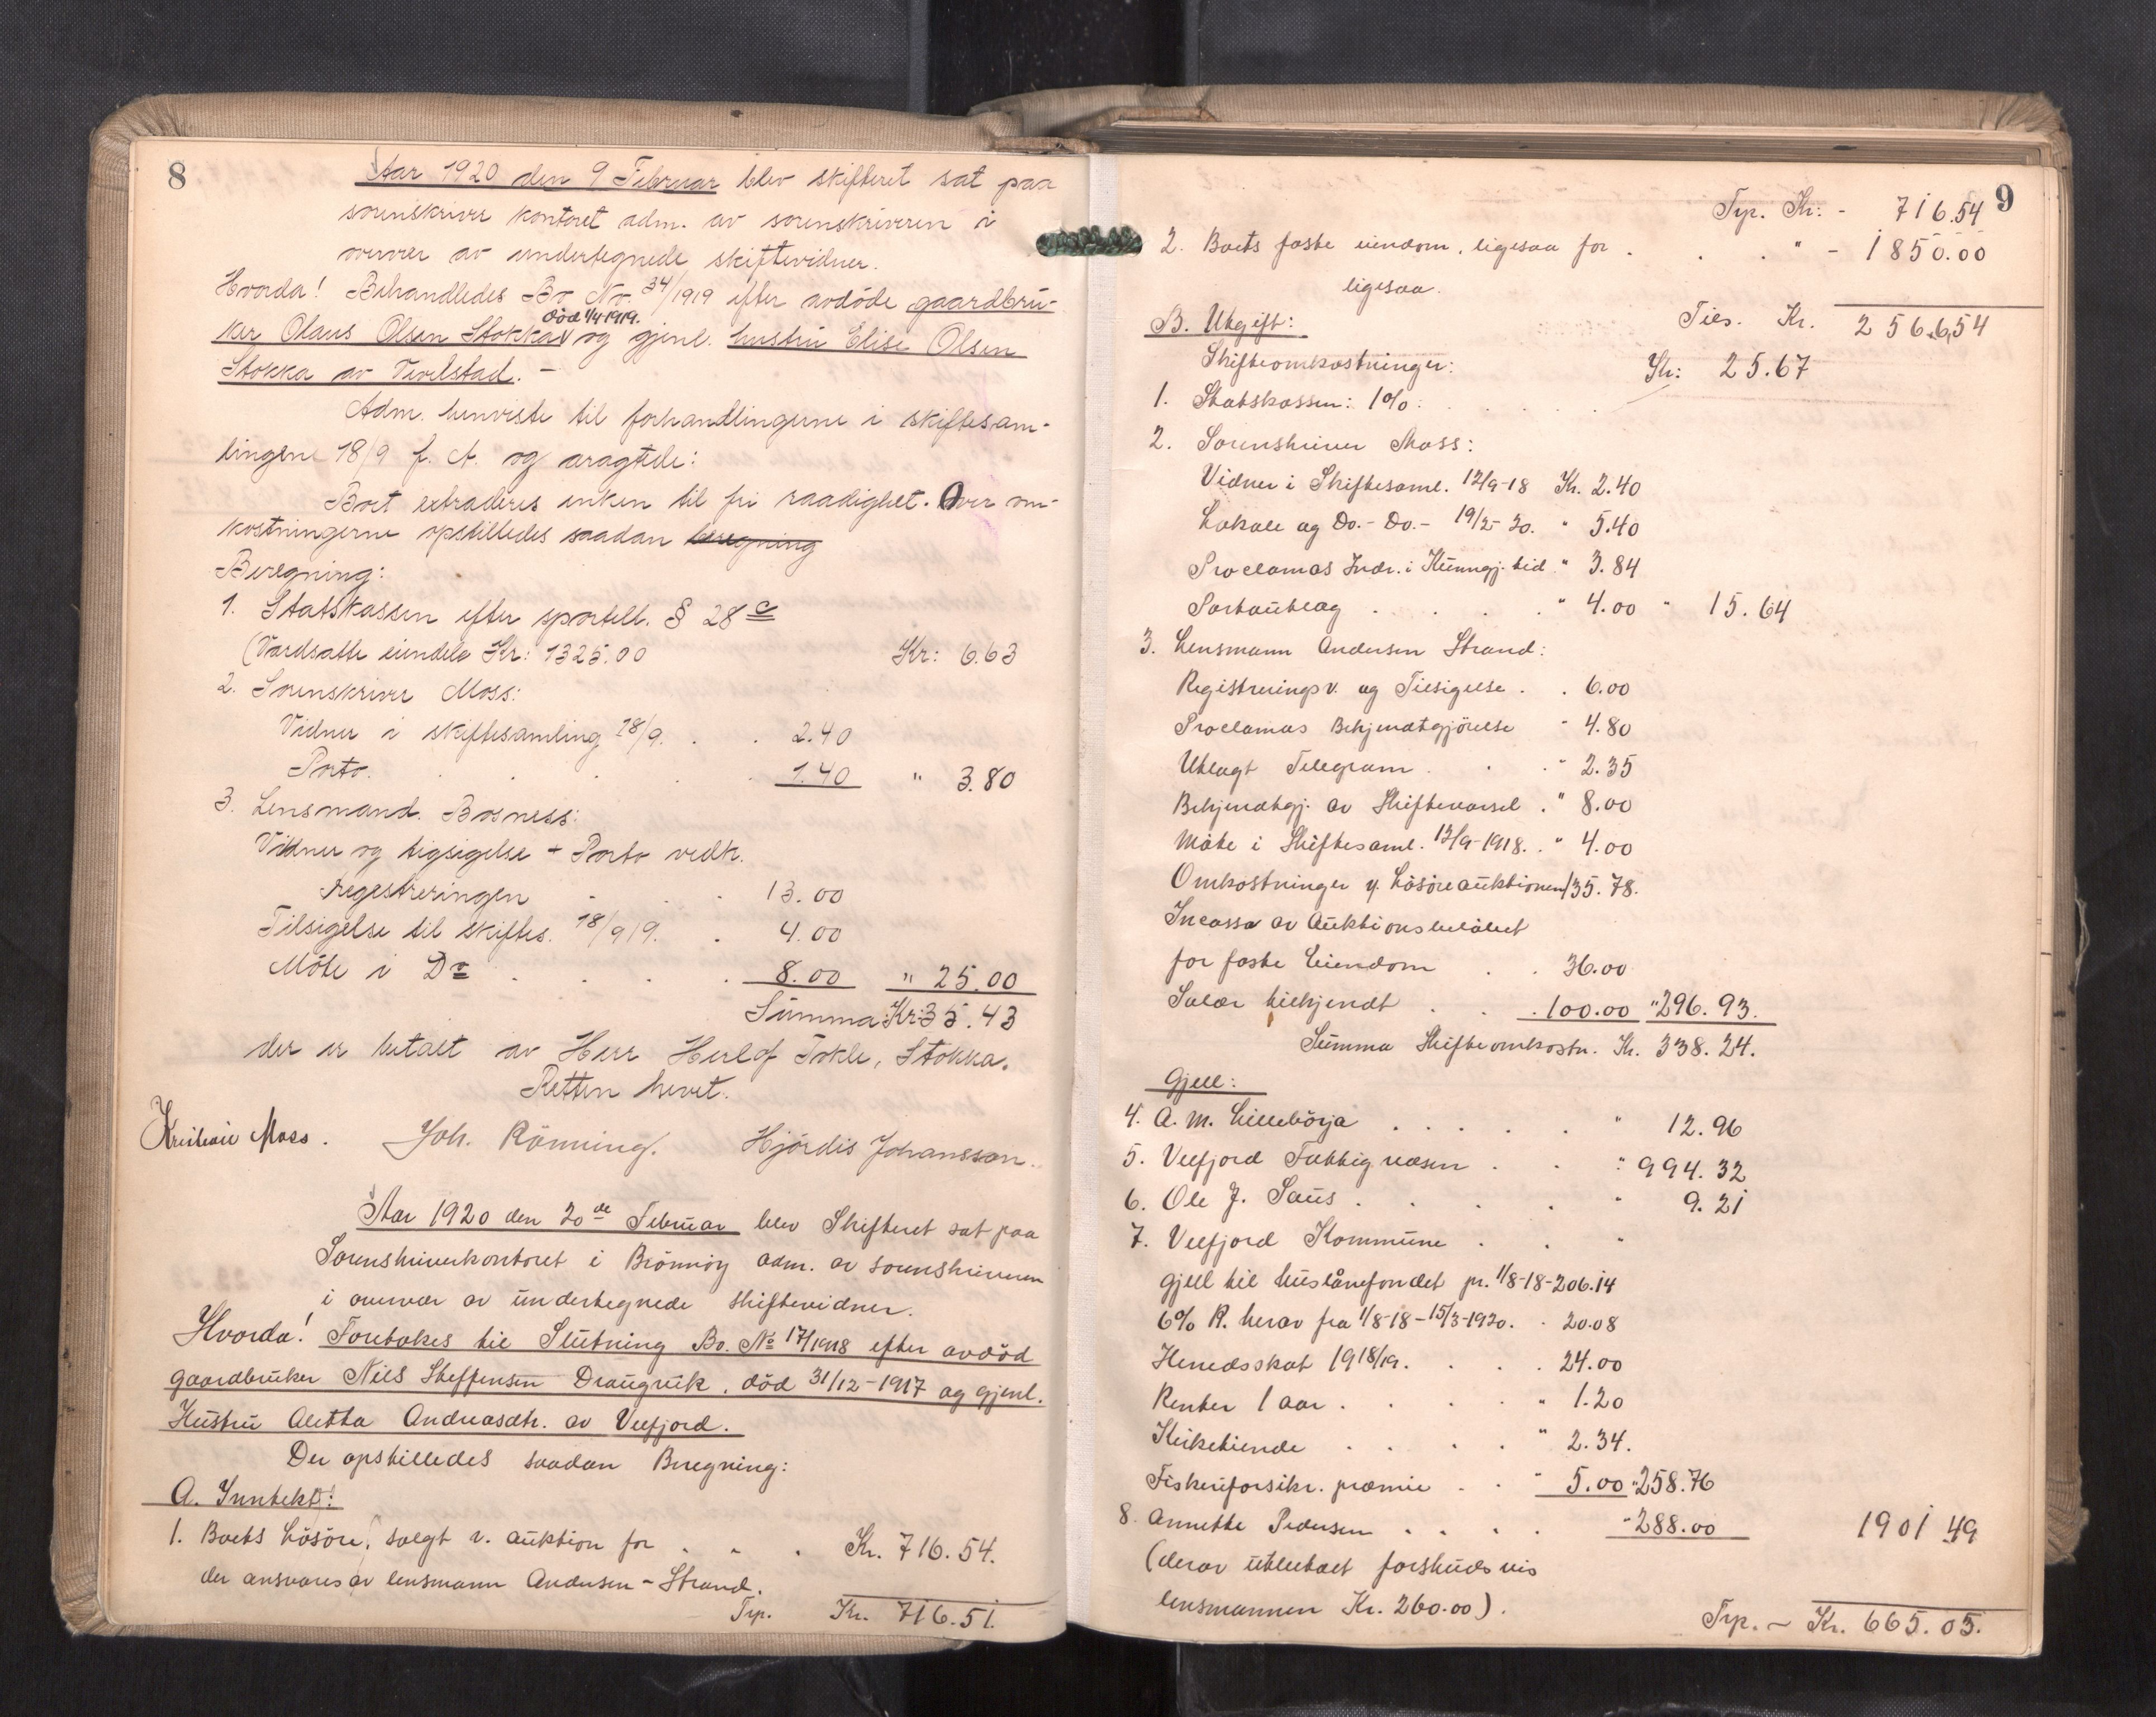 8
Aar 1920 den 9 Februar blev skifteret sat paa
sorenskriver kontoret adm. av sorenskriveren i
overvær av undertegnede skiftevidner.
Hvorda! Behandledes Bo No. 34/1919 efter avdöde gaardbru-
död 1/4 1919.
ker Olaus Olsen Stokka og gjenl. hustru Elise Olsen
Stokka av Tevelstad. -
Adm. henviste til forhandlingerne i skiftesam-
lingen 18/9 f. A. og aragtede:
Boet extraderes enken til fri raadighet. Over om-
kostningerne opstilledes saadan beregning
Beregning:
1. Statskassen efter sportell. § 28 c
(Værdsatte eiendele Kr: 1325.00 Kr: 6.63
2. Sorenskriver Moss:
Vidner i skiftesamling 18/9. . . 2.40
Porto. . . . . 1.40 " 3.80
3. Lensmand. Bosness:
Vidner og tegsigelse + Porto vedk.
regestreringen . . . 13.00
Tilsigelse til skiftes. 18/9 19. . 4.00
Möte i Do . . . . . 8.00 " 25.00
Summa Kr: 35.43
der er betalt av Herr Herlof Tokle, Stokka.
Retten hevet.
Kristian Moss. Joh. Rönning. Hjördis Johansson.
Aar 1920 den 20de Februar blev Skifteret sat paa
Sorenskriverkontoret i Brönnöy adm. av sorenskriveren
i overvær av undertegnede skiftevidner.
Hvorda! Foretokes til Slutning Bo. No 17/1918 efter avdöd
gaardbruker Nils Steffensen Draugvik, död 31/12-1917 og gjenl.
Hustru Aletta Andreasdtr. av Velfjord.
Der opstilledes saadan Beregning:
A. Inntekt:
1. Boets Lösöre, solgt v. auktion for . . . Kr. 716.54.
der ansvares av lensmann Andersen-Strand.
Trp. Kr. 716.51.
9
Trp. Kr: - 716.54
2. Boets faste eiendom, ligesaa for . . . " - 1850.00
ligesaa.
B. Utgift: Tils. Kr. 2566,54
Skifteomkostninger: Kr: 25.67
1. Statskassen: 1%: . . . . .
2. Sorenskriver Moss:
Vidner i Skiftesaml. 12/9-18 Kr. 2.40
Lokale og Do.- Do.- 19/2-20. " 5.40
Proclamas Indr. i Kunngj. tid. " 3.84
Portoutlag . . . . " 4.00 " 15.64
3. Lensmann Andersen Strand:
Registreringsv. og Tilsigelse . . 6.00
Proclamas Bekjendtgjörelse " 4.80
Utlagt Telegram . . . " 2.35
Bekjendtgj. av Skiftevarsel . " 8.00
Möte i Skiftesaml. 12/9-1918. . " 4.00
Omkostninger v. Lösöreauktionen 135.78.
Incasso av Auktionsbelöbet
for faste Eiendom . . 36.00
Salær tilkjendt . . . 100.00 "296.93.
Summa Skifteomkostn. Kr. 338.24.
Gjell:
4. A. M. Lillebörja . . . . . " 12.96
5. Velfjord Fattigvæsen . . . " 994.32
6. Ole J. Saus . . . . . " 9.21
7. Velfjord Kommune . . "
gjell til huslånefondet pr. 1/8-18-206.14
6% R. herav fra 1/8-18-15/3-1920. . 20.08
Herredsskat 1918/19. . . . 24.00
Renter 1 aar . . . . " 1.20
Kirketiende . . . . " 2.34.
Fiskeriforsikr. præmie . . " 5.00 "258.76
8. Annette Pedersen . . . . "288.00 1901 49
(derav utbetalt forskudsvis
lensmannen Kr. 260.00).
Trp. - Kr. 665.05.